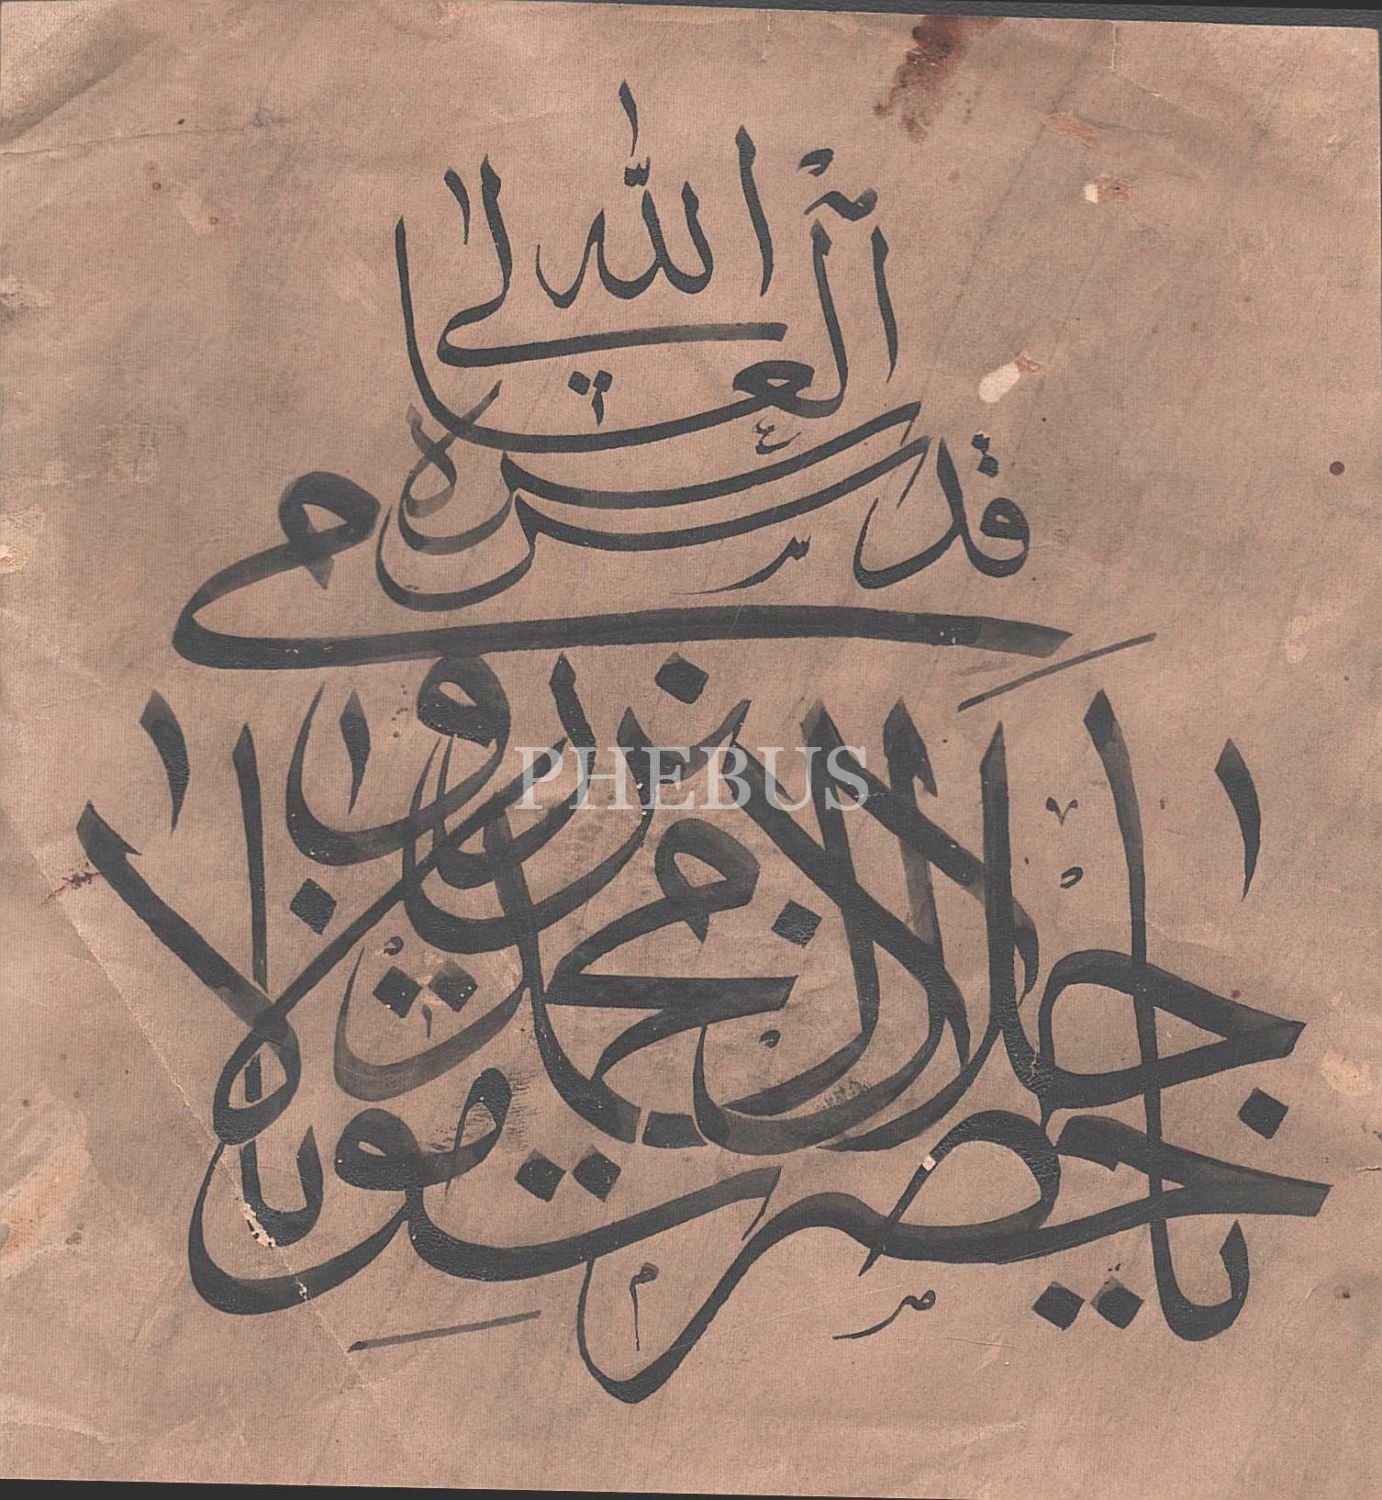 يا حضرت مولانا
محمد جلال الدين رومى
قدس الله سره العالى
PHEBUS